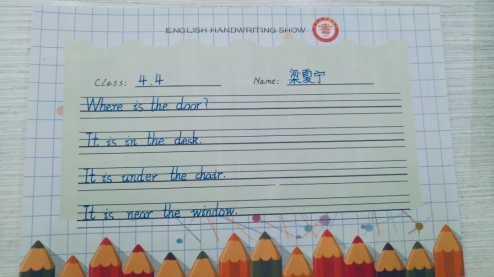 ENGLISH HANDWRITING SHOW
Class: 4.4 Name: 梁夏宁
Where is the door?
It is in the desk.
It is under the chair.
It is near the window.